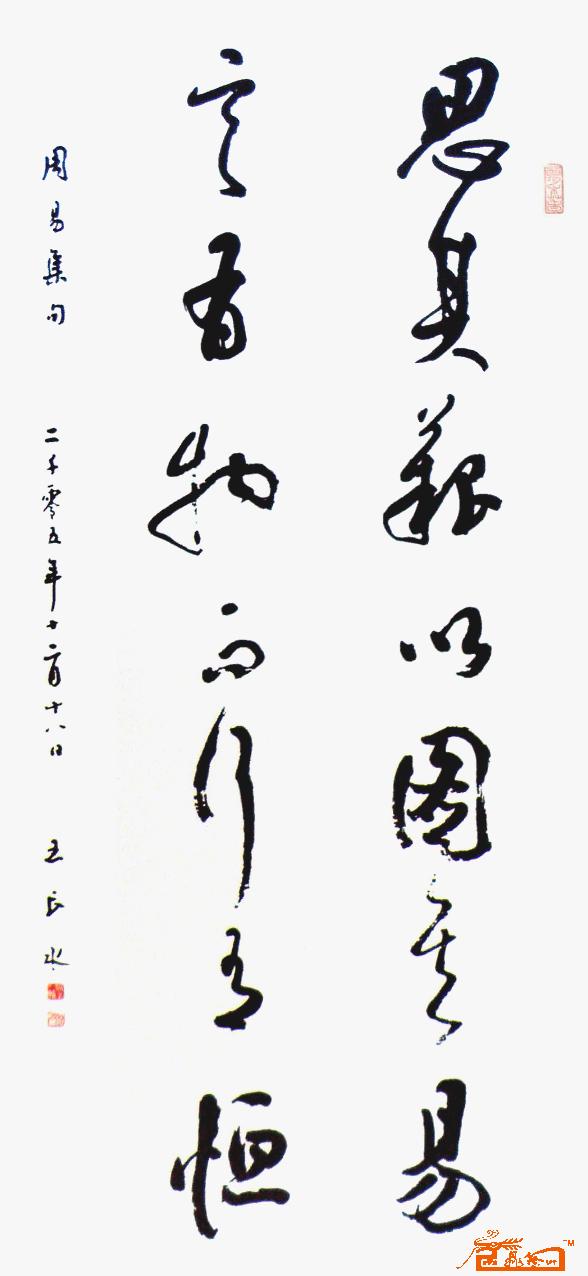 思其艱以圖其易
言有物而行有恒
周易集句 二千零五年十二月十八日 王長水